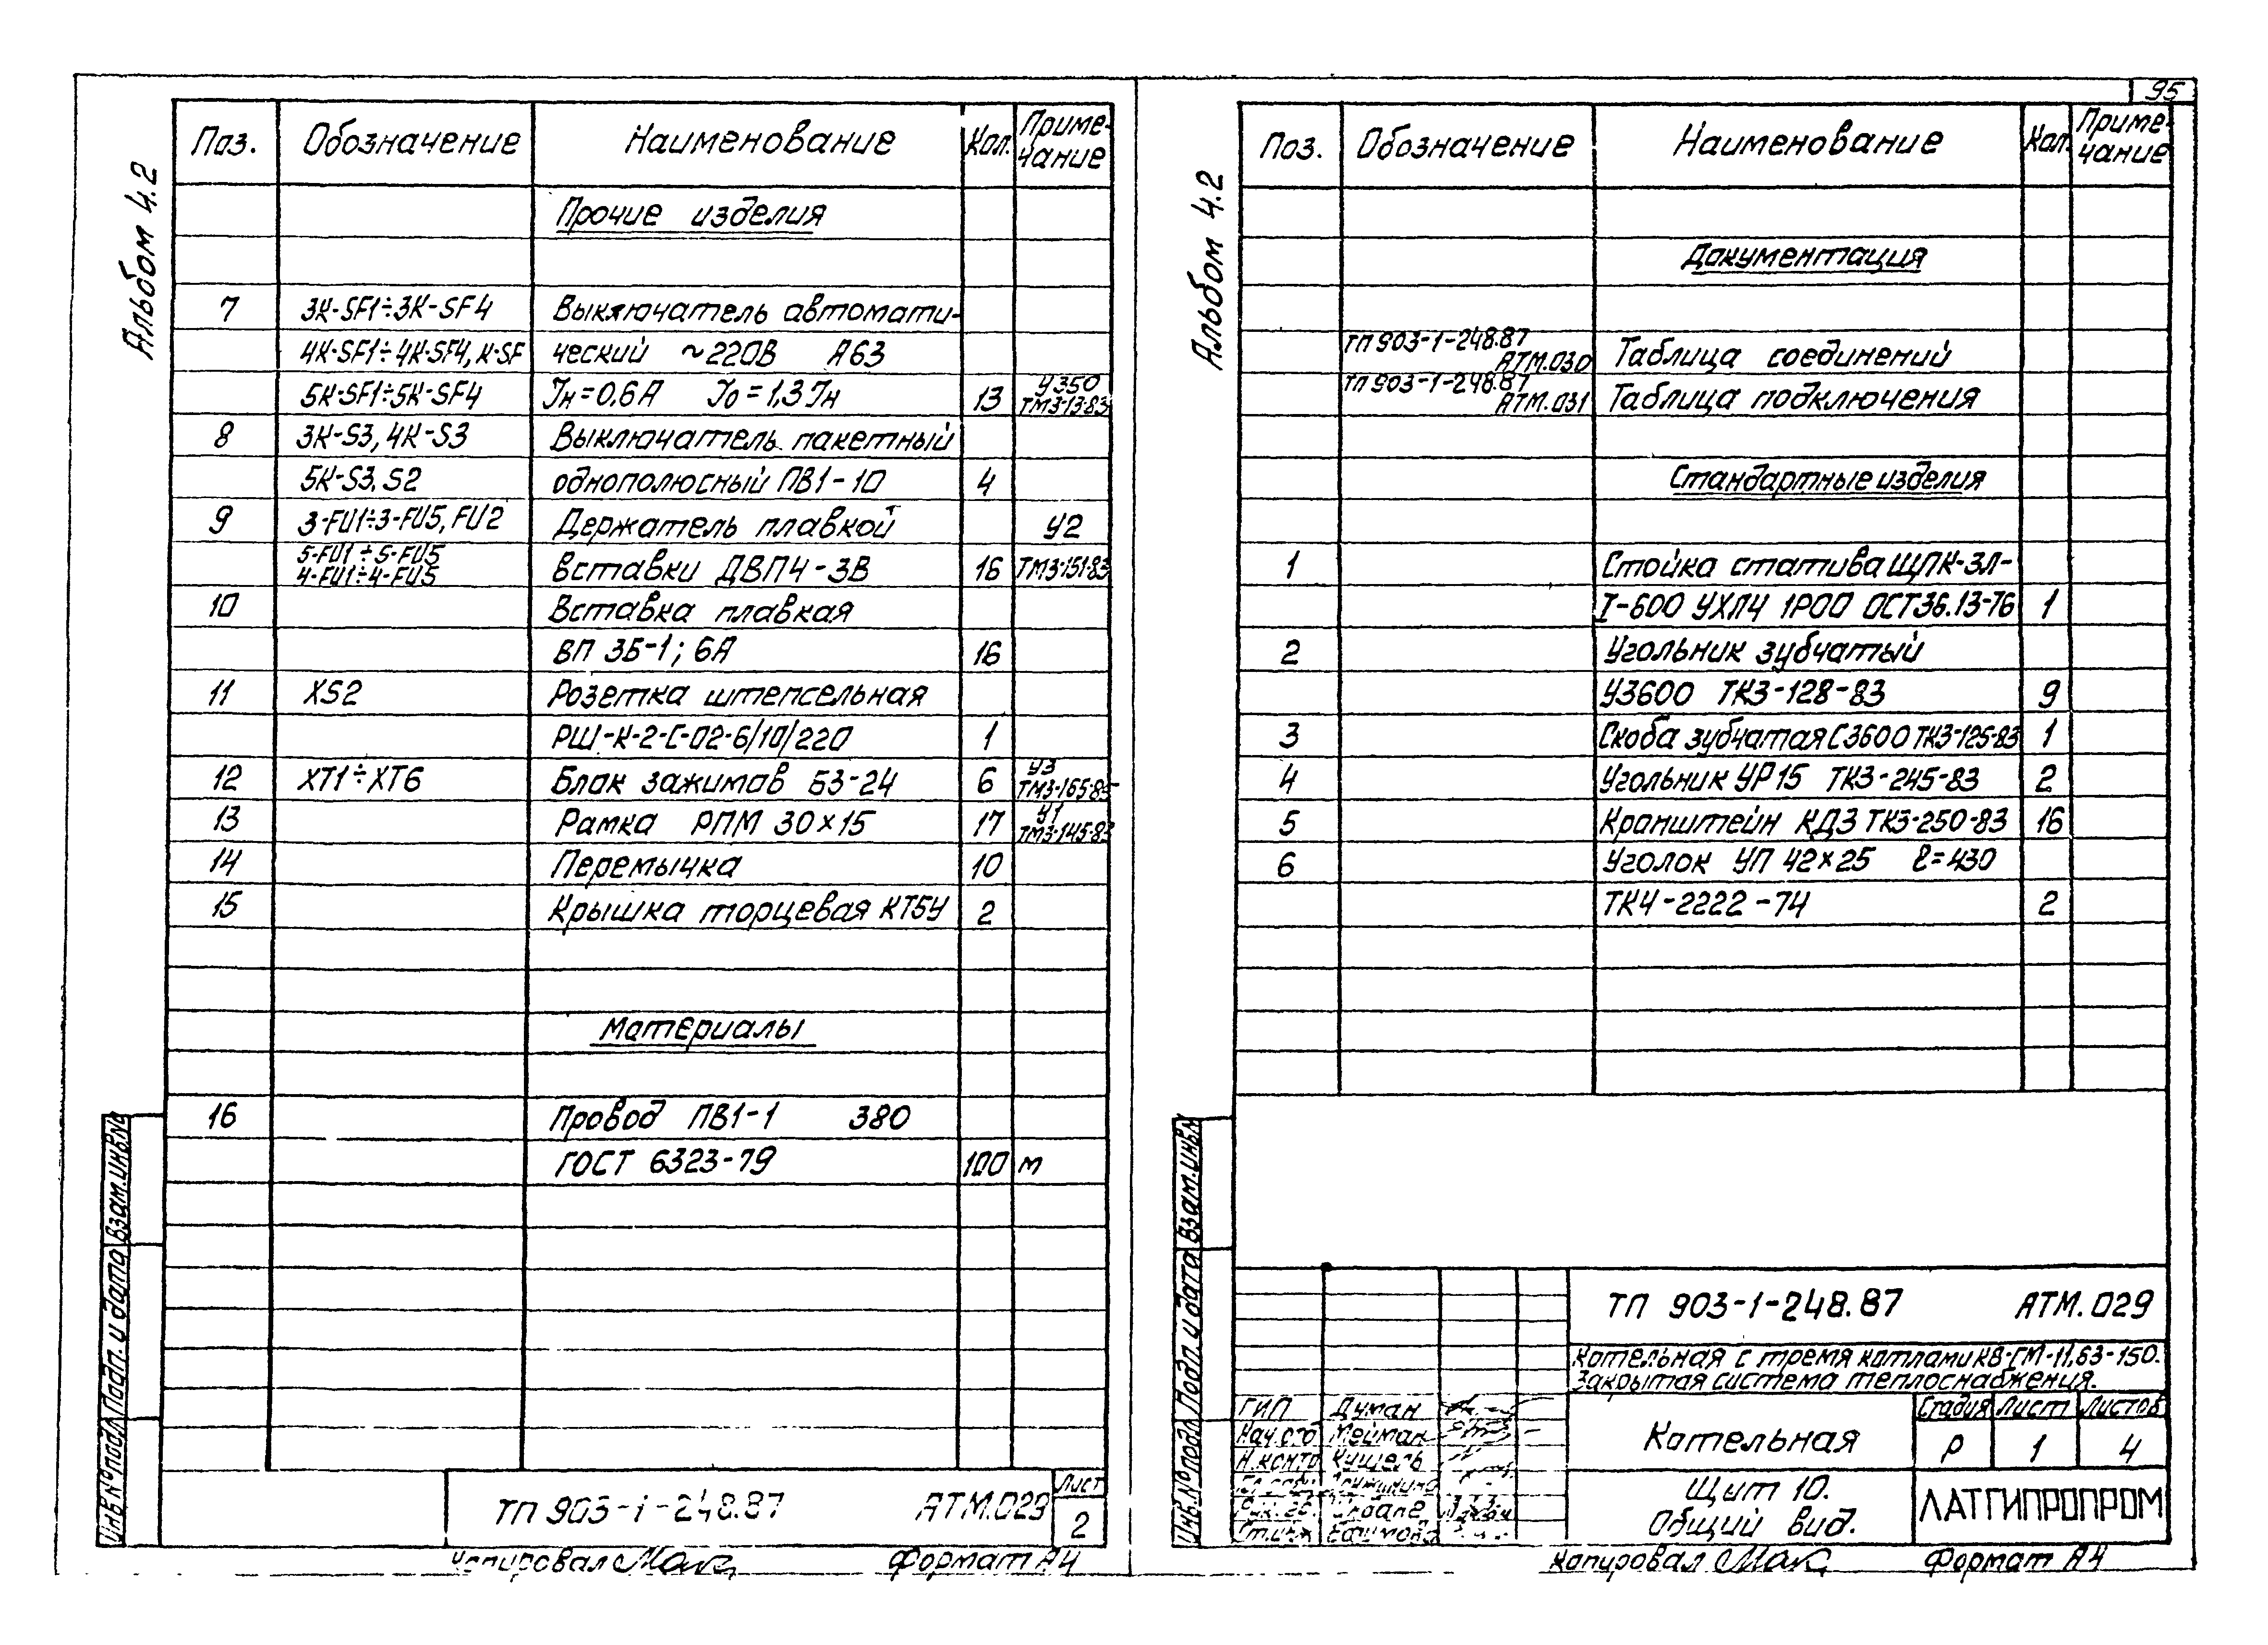 95
Альбом 4.2
Поз. Обозначение Наименование Кол. Приме-чание
Прочие изделия
7 3К-SF1÷3К-SF4 Выключатель автомати-
4К-SF1÷4К-SF4, К-SF ческий ~220В А63
5К-SF1÷5К-SF4 Jн=0,6А Jо=1,3Jн 13 У350 ТМ3-13-83
8 3К-S3, 4К-S3 Выключатель пакетный
5К-S3, S2 однополюсный ПВ1-10 4
9 3-FU1÷3-FU5, FU2 Держатель плавкой У2
5-FU1÷5-FU5
4-FU1÷4-FU5 вставки ДВП4-3В 16 ТМ3-151-83
10 Вставка плавкая
ВП 3Б-1; 6А 16
11 XS2 Розетка штепсельная
РШ-К-2-С-02-6/10/220 1
12 XT1÷XT6 Блок зажимов БЗ-24 6 У3 ТМ3-165-83
13 Рамка РПМ 30×15 17 У1 ТМ3-145-83
14 Перемычка 10
15 Крышка торцевая КТ5У 2
Материалы
16 Провод ПВ1-1 380
ГОСТ 6323-79 100 м
Инв.№подл. Подп. и дата Взам.инв.№
ТП 903-1-248.87 АТМ.029 Лист 2
Копировал Формат А4
Альбом 4.2
Поз. Обозначение Наименование Кол. Приме-чание
Документация
ТП 903-1-248.87 АТМ.030 Таблица соединений
ТП 903-1-248.87 АТМ.031 Таблица подключения
Стандартные изделия
1 Стойка статива ЩПК-ЗЛ-
I-600 УХЛ4 1Р00 ОСТ36.13-76 1
2 Угольник зубчатый
УЗ600 ТК3-128-83 9
3 Скоба зубчатая СЗ600 ТК3-125-83 1
4 Угольник УР15 ТК3-245-83 2
5 Кронштейн КД3 ТК3-250-83 16
6 Уголок УП 42×25 ℓ=430
ТК4-2222-74 2
Инв.№подл. Подп. и дата Взам.инв.№
ТП 903-1-248.87 АТМ.029
Котельная с тремя котлами КВ-ГМ-11,63-150.
Закрытая система теплоснабжения.
ГИП Думан
Нач.отд Мейман
Н.контр Кишель
Ст.инж Ефимова
Котельная
Стадия Лист Листов
Р 1 4
Щит 10.
Общий вид.
ЛАТГИПРОПРОМ
Копировал Формат А4